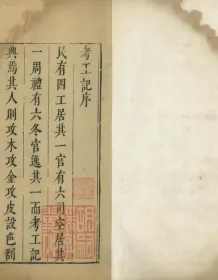 考工記序
民有四工居其一官有六司空居其
一周禮有六冬官逸其一而考工記
興焉其人則攻木攻金攻皮設色刮